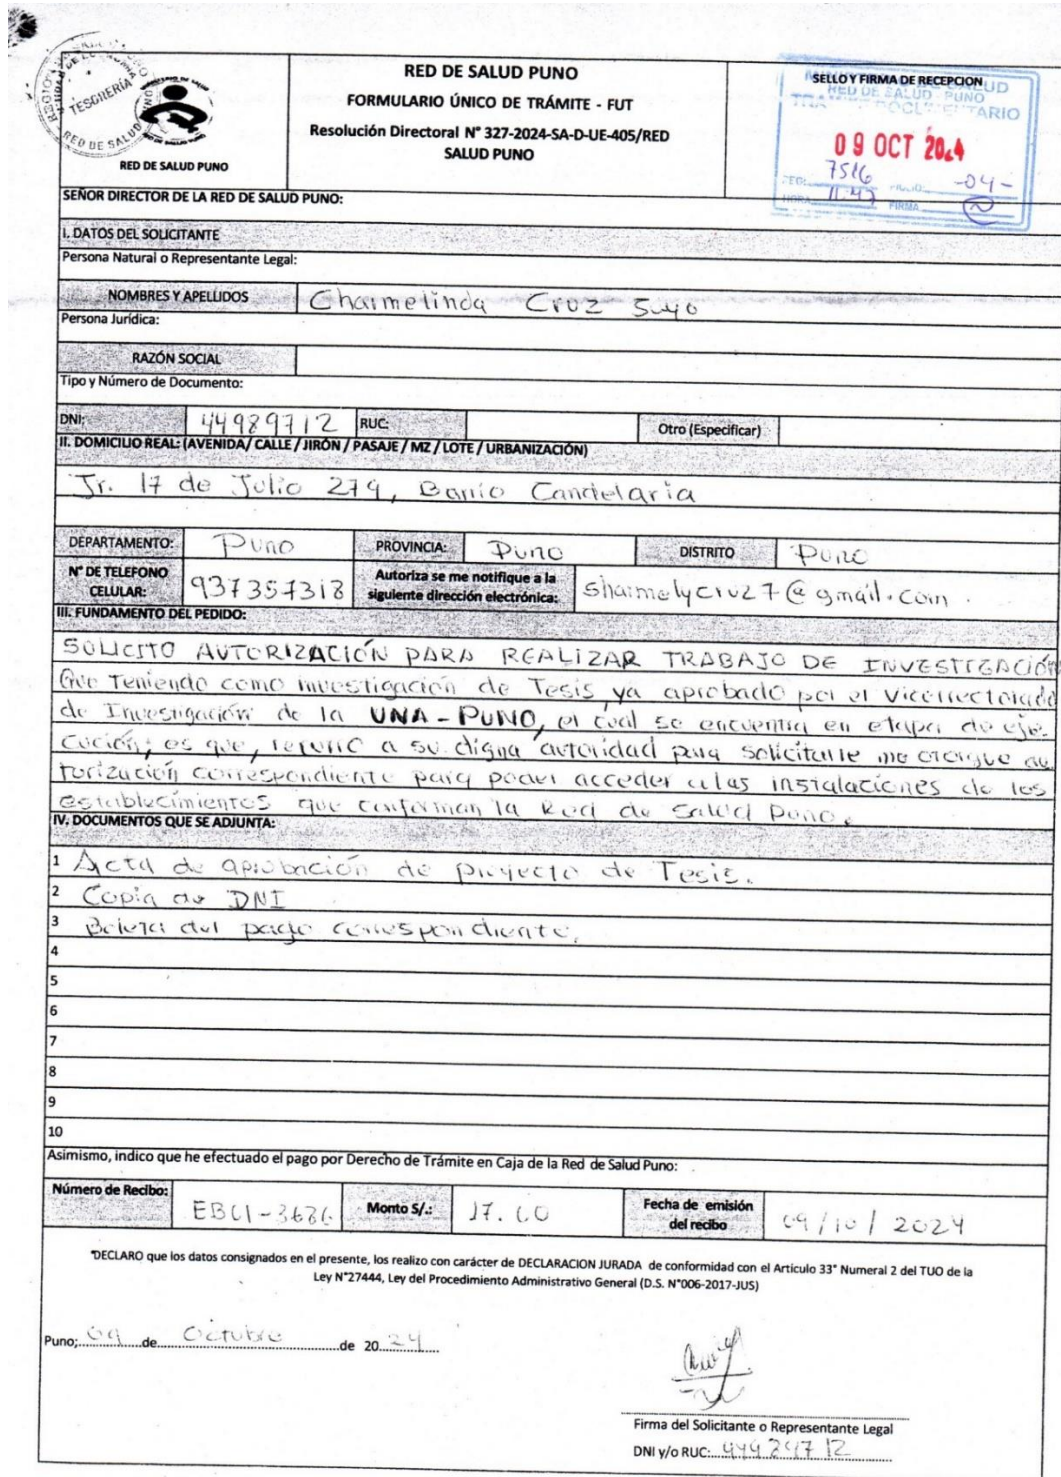 RED DE SALUD PUNO
FORMULARIO ÚNICO DE TRÁMITE - FUT
Resolución Directoral N° 327-2024-SA-D-UE-405/RED
SALUD PUNO
TESORERÍA
RED DE SALUD
RED DE SALUD PUNO
SELLO Y FIRMA DE RECEPCION
RED DE SALUD PUNO
09 OCT 2024
7516 -04-
HORA 11:47 FIRMA
SEÑOR DIRECTOR DE LA RED DE SALUD PUNO:
I. DATOS DEL SOLICITANTE
Persona Natural o Representante Legal:
NOMBRES Y APELLIDOS Gharmelinda Cruz Suyo
Persona Jurídica:
RAZÓN SOCIAL
Tipo y Número de Documento:
DNI: 44989712 RUC: Otro (Especificar)
II. DOMICILIO REAL: (AVENIDA/ CALLE / JIRÓN / PASAJE / MZ / LOTE / URBANIZACIÓN)
Jr. 17 de Julio 279, Barrio Candelaria
DEPARTAMENTO: Puno PROVINCIA: Puno DISTRITO Puno
N° DE TELEFONO CELULAR: 937357318 Autoriza se me notifique a la siguiente dirección electrónica: sharmelycruz7@gmail.com.
III. FUNDAMENTO DEL PEDIDO:
SOLICITO AUTORIZACIÓN PARA REALIZAR TRABAJO DE INVESTIGACIÓN
Que Teniendo como investigación de Tesis ya aprobado por el Vicerrectorado
de Investigación de la UNA-PUNO, el cual se encuentra en etapa de eje-
cución; es que, recurro a su digna autoridad para solicitarle me otorgue au
torización correspondiente para poder acceder a las instalaciones de los
establecimientos que conforman la Red de Salud Puno.
IV. DOCUMENTOS QUE SE ADJUNTA:
1 Acta de aprobación de proyecto de Tesis.
2 Copia de DNI
3 Boleta del pago correspondiente.
4
5
6
7
8
9
10
Asimismo, indico que he efectuado el pago por Derecho de Trámite en Caja de la Red de Salud Puno:
Número de Recibo: EBC1-3686 Monto S/.: 17.00 Fecha de emisión del recibo 09/10/2024
"DECLARO que los datos consignados en el presente, los realizo con carácter de DECLARACION JURADA de conformidad con el Articulo 33° Numeral 2 del TUO de la
Ley N°27444, Ley del Procedimiento Administrativo General (D.S. N°006-2017-JUS)
Puno; 09 de Octubre de 2024
Firma del Solicitante o Representante Legal
DNI y/o RUC: